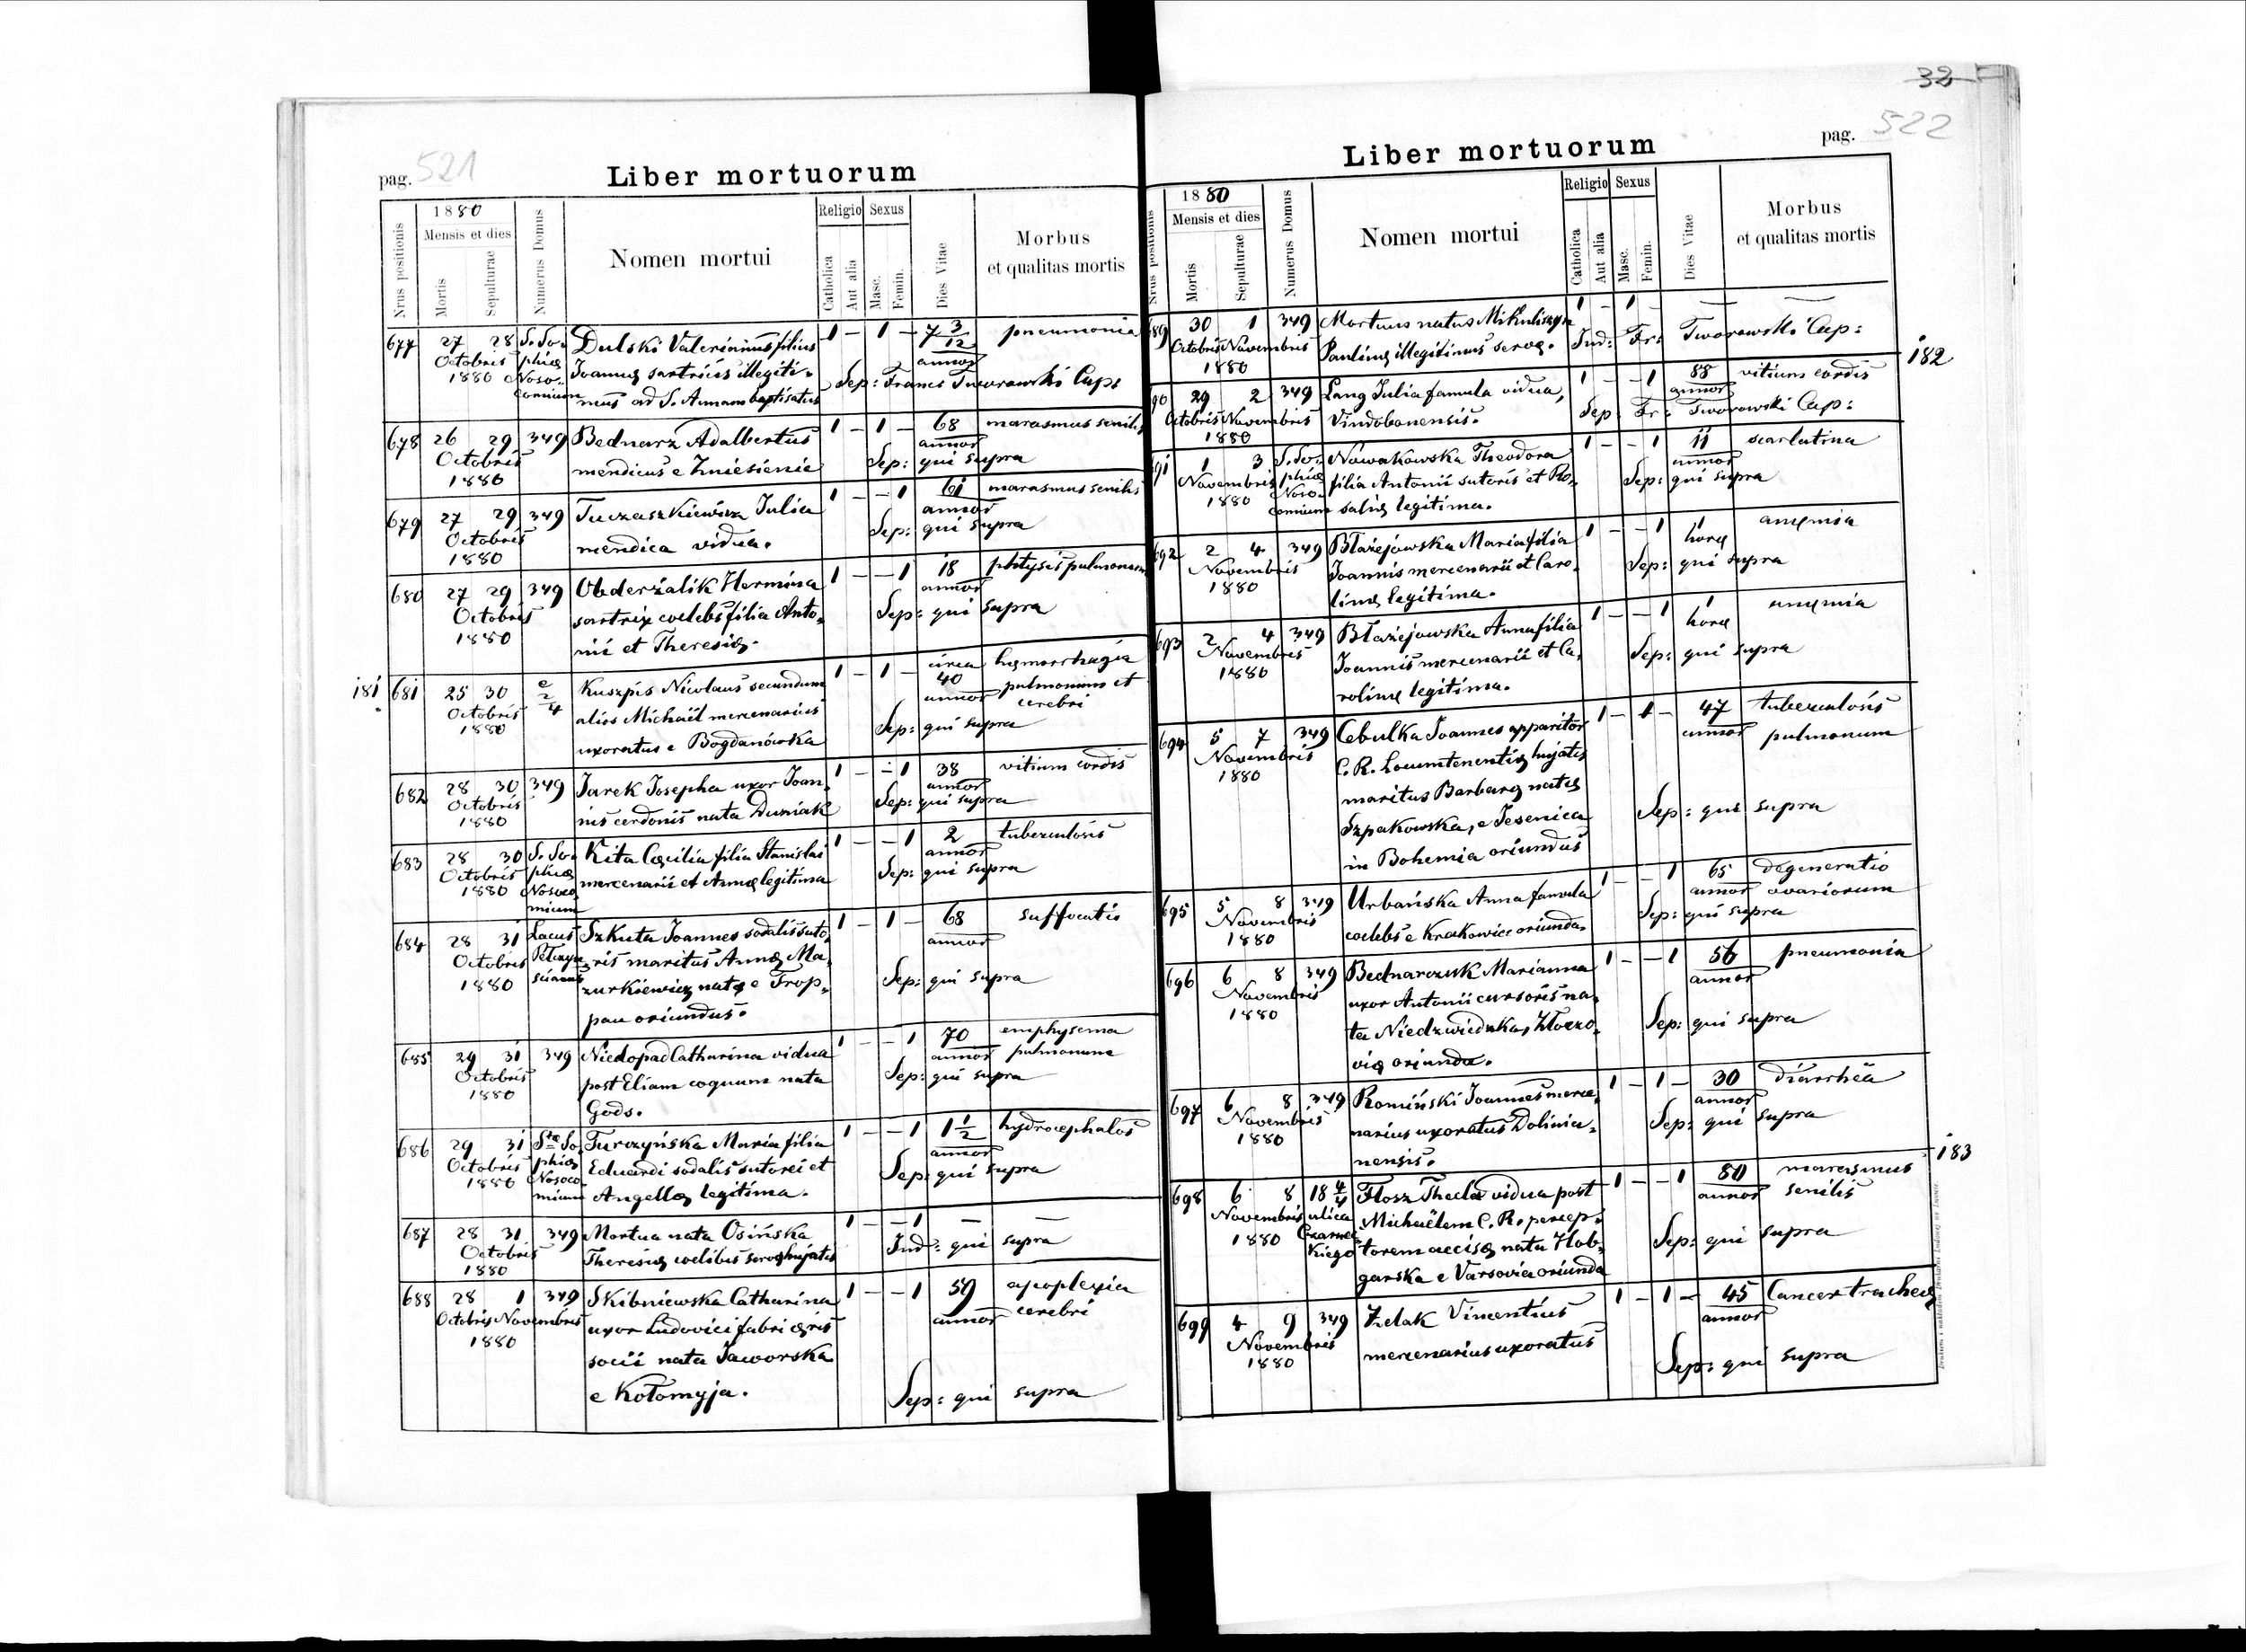 32
pag. 521
Liber mortuorum
Nrus positionis
1880
Mensis et dies
Mortis
Sepulturae
Numerus Domus
Nomen mortui
Religio
Catholica
Aut alia
Sexus
Masc.
Femin.
Dies Vitae
Morbus
et qualitas mortis
677 27 28 S. So- Dulski Valerianus filius 1 – 1 – 7 3/12 pneumonia
Octobris phiæ Joannæ sartricis illegiti- annor
1880 Noso- mus ad S. Annam baptisatus Sep: Franc Tworowski Cap:
comium
678 26 29 349 Bednarz Adalbertus 1 – 1 – 68 marasmus senilis
Octobris mendicus e Zniesienie annor
1880 Sep: qui supra
679 27 29 349 Tuczaszkiewicz Julia 1 – – 1 61 marasmus senilis
Octobris mendica vidua. annor
1880 Sep: qui supra
680 27 29 349 Obderzalik Hermina 1 – – 1 18 phtysis pulmonum
Octobris sartrix coelebs filia Anto- annor
1880 nii et Theresiæ. Sep: qui supra
181 681 25 30 e 2/4 Kuszpis Nicolaus secundum 1 – 1 – circa 40 hæmorrhagia
Octobris alios Michaël mercenarius annor pulmonum et
1880 uxoratus e Bogdanówka Sep: qui supra cerebri
682 28 30 349 Jarek Josepha uxor Joan- 1 – – 1 38 vitium cordis
Octobris nis cerdonis nata Dusniak annor
1880 Sep: qui supra
683 28 30 S. So- Kita Cæcilia filia Stanislai 1 – – 1 2 tuberculosis
Octobris phiæ mercenarii et Annæ legitima annor
1880 Nosoco Sep: qui supra
mium
684 28 31 Lacus Szkuta Joannes sodalis suto- 1 – 1 – 68 suffocatio
Octobris Pełczyn ris maritus Annæ Ma- annor
1880 scianus zurkiewicz natæ e Trop- Sep: qui supra
pau oriundus.
685 29 31 349 Niedopad Catharina vidua 1 – – 1 70 emphysema
Octobris post Eliam coquum nata annor pulmonum
1880 Gods. Sep: qui supra
686 29 31 Stæ So Turczyńska Maria filia 1 – – 1 1 1/2 hydrocephalos
Octobris phiæ Eduardi sodalis sutorei et annor
1880 Nosoco- Angellæ legitima. Sep: qui supra
mium
687 28 31 349 Mortua nata Osińska 1 – – 1 – –
Octobris Theresiæ coelibis servæ hujatis Ind: qui supra
1880
688 28 1 349 Skibniewska Catharina 1 – – 1 59 apoplexia
Octobris Novembris uxor Ludovici fabri æris annor cerebri
1880 socii nata Jaworska
e Kołomyja. Sep: qui supra
pag. 522
Liber mortuorum
Nrus positionis
1880
Mensis et dies
Mortis
Sepulturae
Numerus Domus
Nomen mortui
Religio
Catholica
Aut alia
Sexus
Masc.
Femin.
Dies Vitae
Morbus
et qualitas mortis
689 30 1 349 Mortuus natus Mikuliszyn 1 – 1 – – –
Octobris Novembris Paulinæ illegitimus servæ. Ind: Fr: Tworowski Cap:
1880
182
690 29 2 349 Lang Julia famula vidua, 1 – – 1 88 vitium cordis
Octobris Novembris Vindobonensis. annor
1880 Sep: Fr: Tworowski Cap:
691 1 3 S. So- Nowakowska Theodora 1 – – 1 11 scarlatina
Novembris phiæ filia Antonii sutoris et Ro- annor
1880 Noso- saliæ legitima. Sep: qui supra
comium
692 2 4 349 Błażejowska Maria filia 1 – – 1 1 anæmia
Novembris Joannis mercenarii et Caro- horæ
1880 linæ legitima. Sep: qui supra
693 2 4 349 Błażejowska Anna filia 1 – – 1 1 anæmia
Novembris Joannis mercenarii et Ca- horæ
1880 rolinæ legitima. Sep: qui supra
694 5 7 349 Cebulka Joannes apparitor 1 – 1 – 47 tuberculosis
Novembris C. R. Locumtenentiæ hujatis annor pulmonum
1880 maritus Barbaræ natæ
Szpakowska, e Jesenica Sep: qui supra
in Bohemia oriundus
695 5 8 349 Urbańska Anna famula 1 – – 1 65 degeneratio
Novembris coelebs e Krakowice oriunda. annor ovariorum
1880 Sep: qui supra
696 6 8 349 Bednarczuk Marianna 1 – – 1 56 pneumonia
Novembris uxor Antonii cursoris na- annor
1880 ta Niedzwiedzka, Złoczo- Sep: qui supra
viæ oriunda.
697 6 8 349 Romiński Joannes merce- 1 – 1 – 30 diarrhëa
Novembris narius uxoratus Dolinia- annor
1880 nensis. Sep: qui supra
183
698 6 8 18 4/4 Flosz Thecla vidua post 1 – – 1 80 marasmus
Novembris ulica Michaëlem C. R. percep- annor senilis
1880 Czarnec torem accisæ nata Hob-
kiego garska e Varsovia oriunda Sep: qui supra
699 4 9 349 Zelak Vincentius 1 – 1 – 45 Cancer tracheæ
Novembris mercenarius uxoratus annor
1880 Sep: qui supra